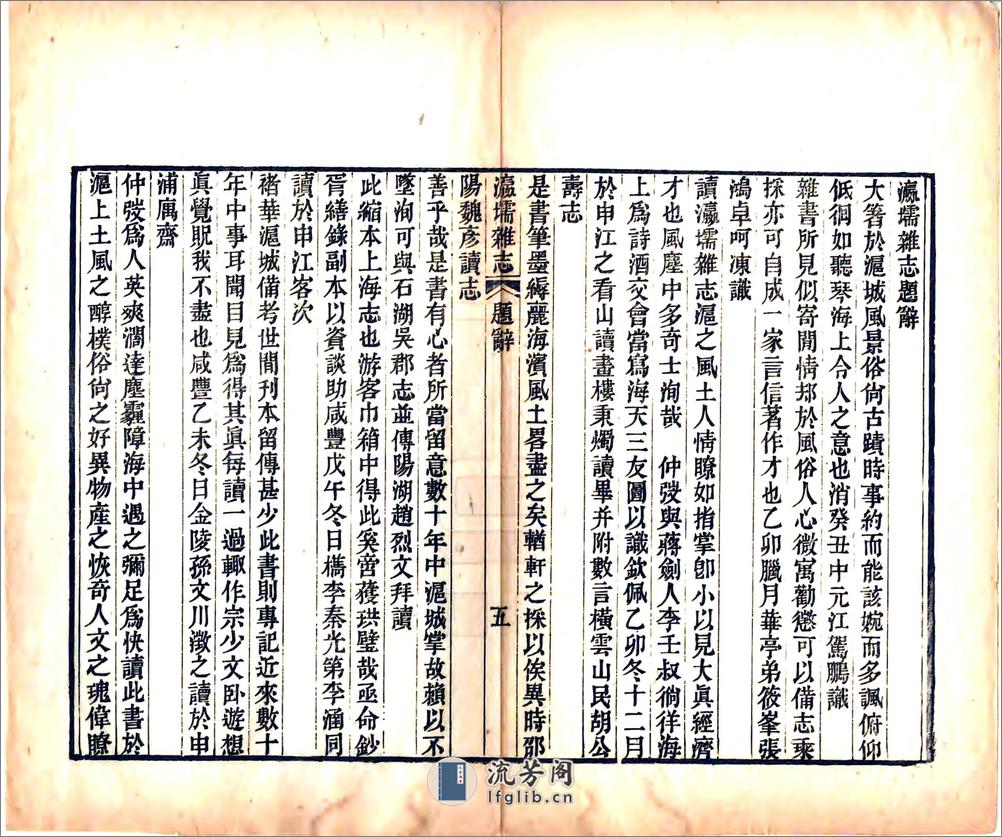 瀛壖雜志題辭
大箸於滬城風景俗尙古蹟時事約而能該婉而多諷俯仰
低徊如聽琴海上令人之意也消癸丑中元江駕鵬識
雜書所見似寄閒情却於風俗人心微寓勸懲可以備志乘
採亦可自成一家言信著作才也乙卯臘月華亭弟筱峯張
鴻卓呵凍識
讀瀛壖雜志滬之風土人情瞭如指掌卽小以見大眞經濟
才也風塵中多奇士洵哉 仲弢與蔣劍人李壬叔徜徉海
上爲詩酒交會當寫海天三友圖以識欽佩乙卯冬十二月
於申江之看山讀畫樓秉燭讀畢并附數言橫雲山民胡公
壽志
是書筆墨縟麗海濱風土畧盡之矣輶軒之採以俟異時邵
瀛壖雜志 題辭 五
陽魏彥讀志
善乎哉是書有心者所當留意數十年中滬城掌故賴以不
墜洵可與石湖吳郡志並傳陽湖趙烈文拜讀
此縮本上海志也游客巾箱中得此奚啻獲珙璧哉亟命鈔
胥繕錄副本以資談助咸豐戊午冬日檇李秦光第李涵同
讀於申江客次
褚華滬城備考世閒刊本留傳甚少此書則專記近來數十
年中事耳聞目見爲得其眞每讀一過輒作宗少文臥遊想
眞覺貺我不盡也咸豐乙未冬日金陵孫文川澂之讀於申
浦厲齋
仲弢爲人英爽濶達塵霾障海中遇之彌足爲快讀此書於
滬上土風之醇樸俗尙之好異物產之恢奇人文之瑰偉瞭
流芳阁
lfglib.cn